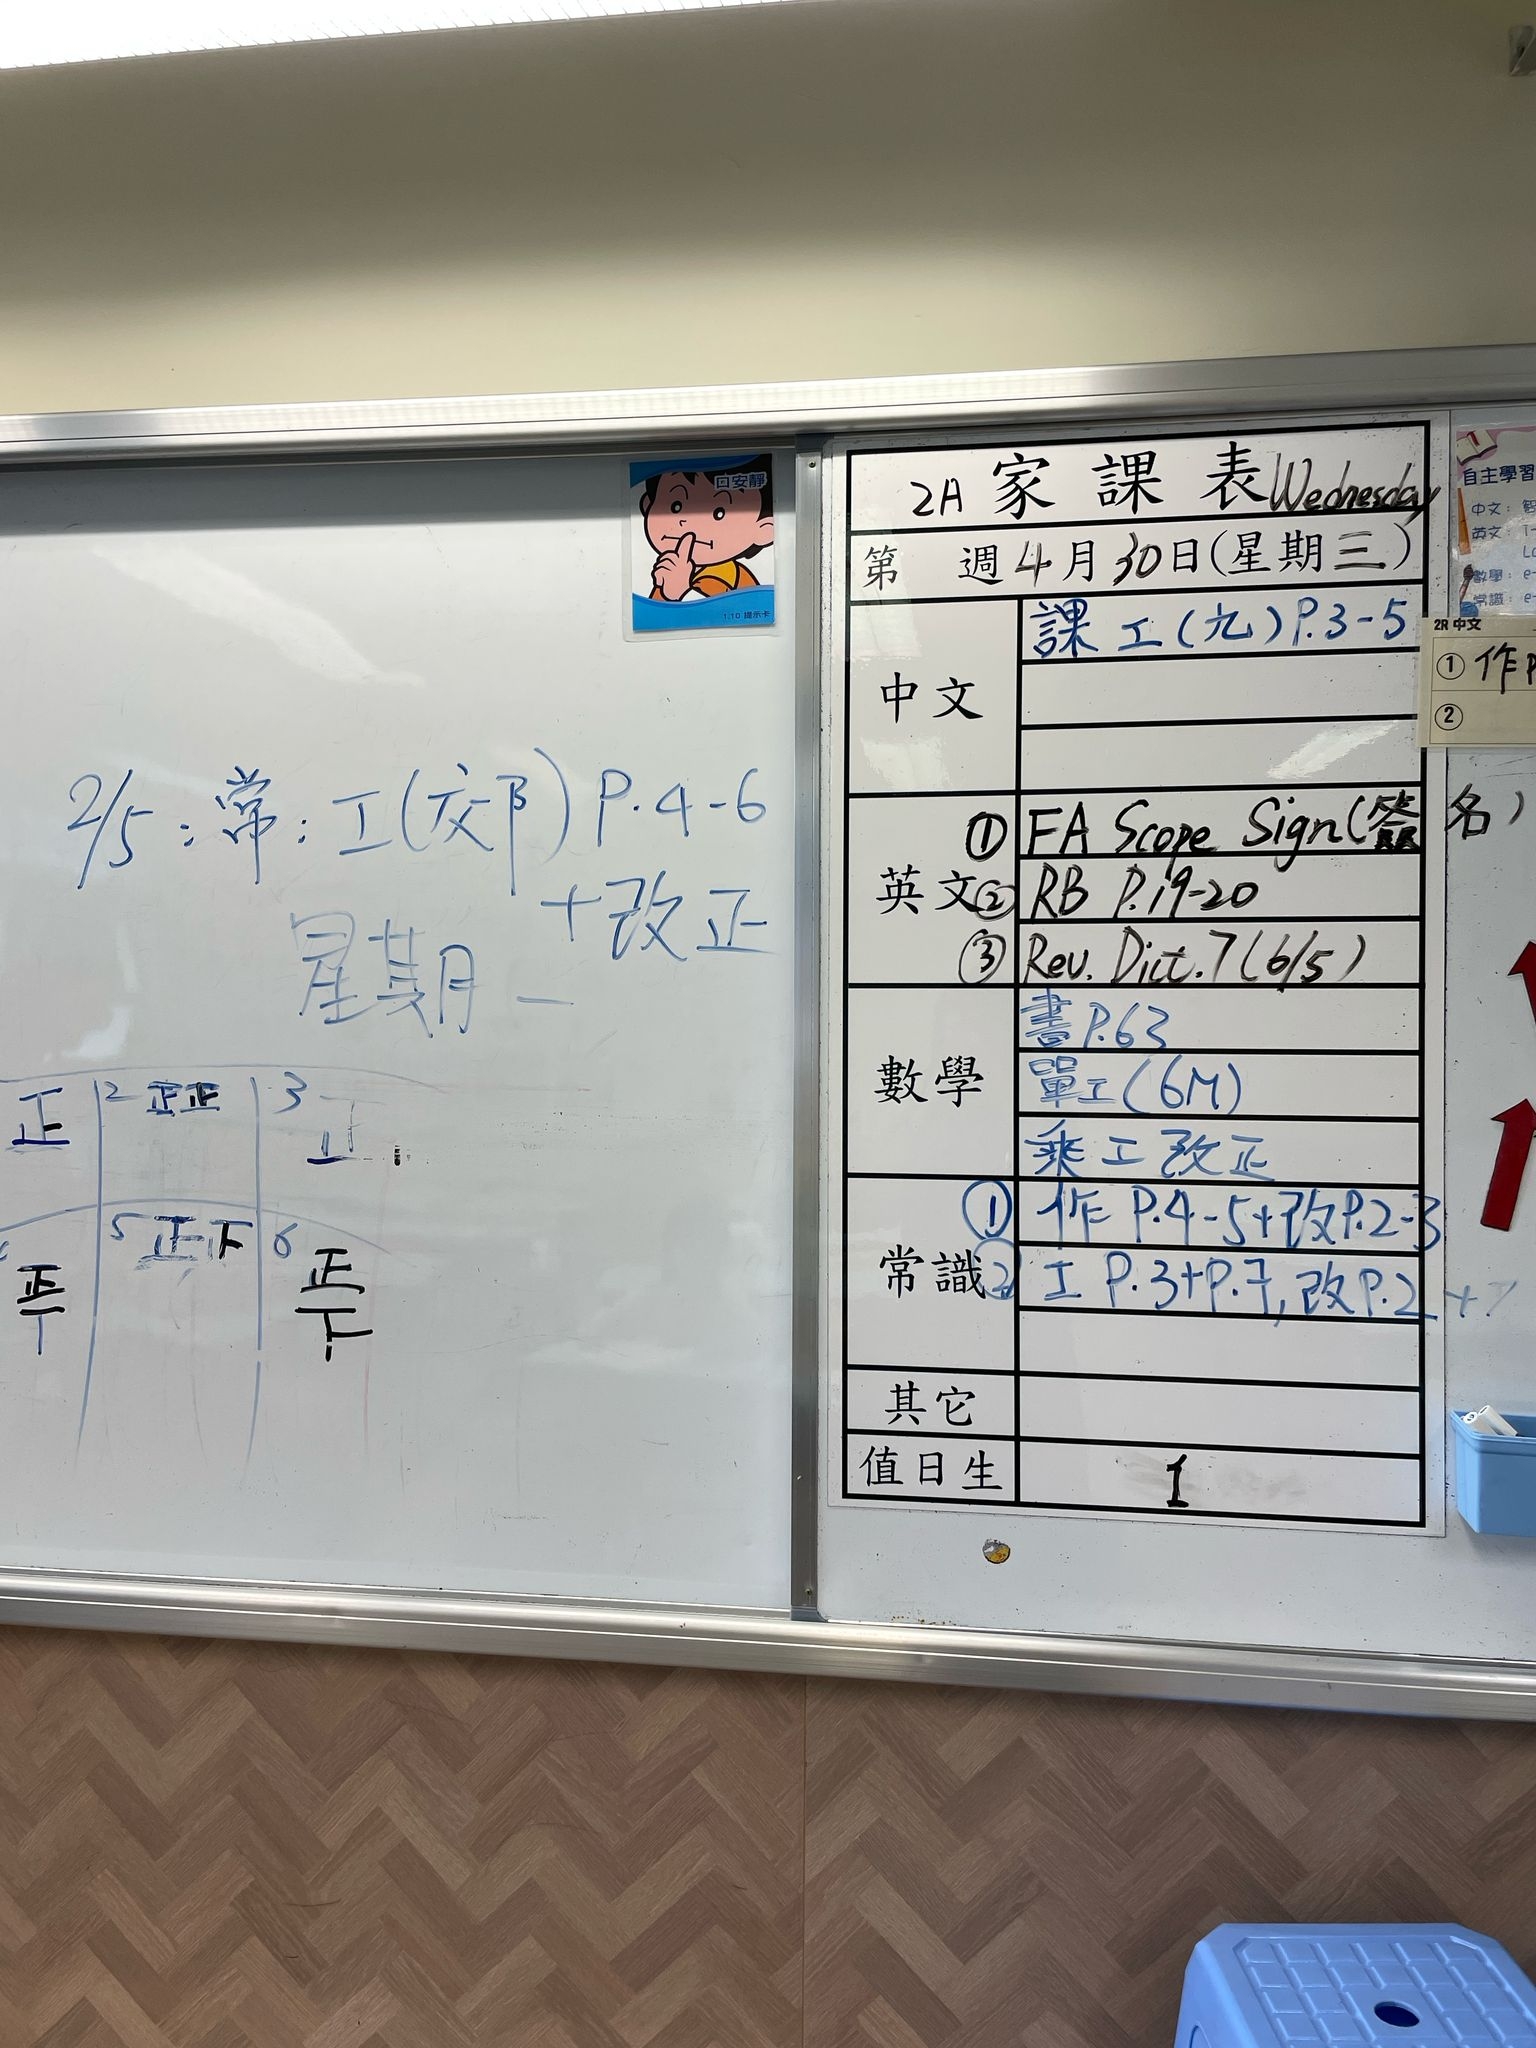 口安靜
1.10 提示卡
2/5：常：工(交阝) P.4-6
+改正
星期一
正 2 正正 3 正
5 正下 6 正
正 下
2A 家課表 Wednesday
第 週 4月30日(星期三)
中文 課工(九)P.3-5
英文 ① FA Scope Sign(簽名)
② RB P.19-20
③ Rev. Dict.7(6/5)
數學 書P.63
單工(6M)
乘工改正
常識 ① 作 P.4-5+改P.2-3
② 工 P.3+P.7, 改P.2+7
其它
值日生 1
自主學習
中文：
英文：1-
數學：e-
常識：e-
2R 中文
① 作P
②